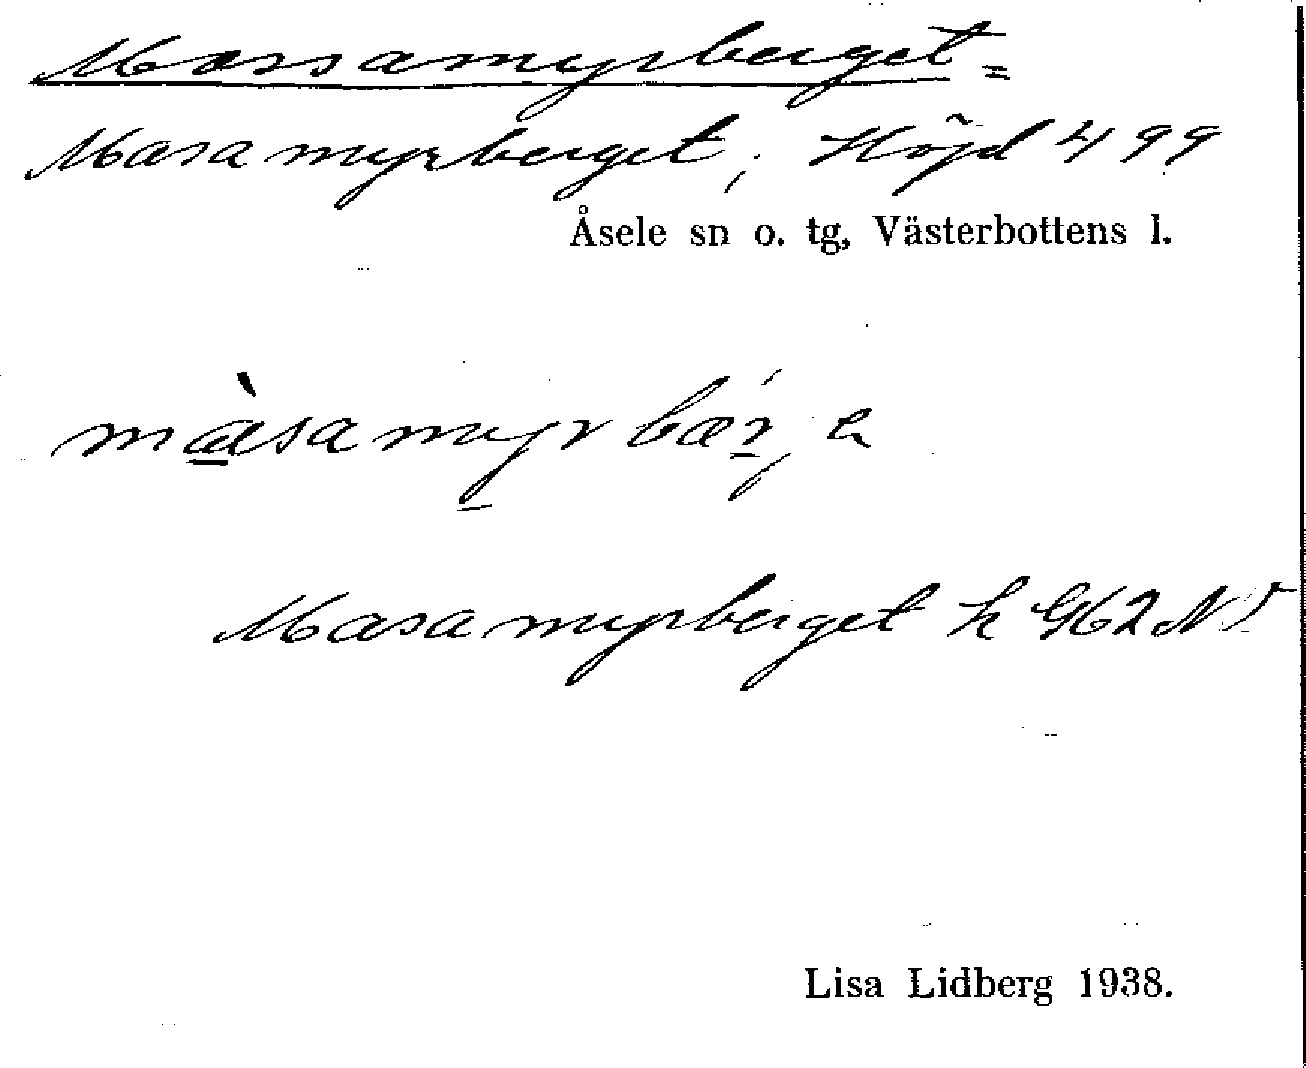 Massamyrberget =
Masamyrberget, Höjd 499
Åsele sn o. tg, Västerbottens l.
màsamyrbær̀je
Masamyrberget h G62NV
Lisa Lidberg 1938.